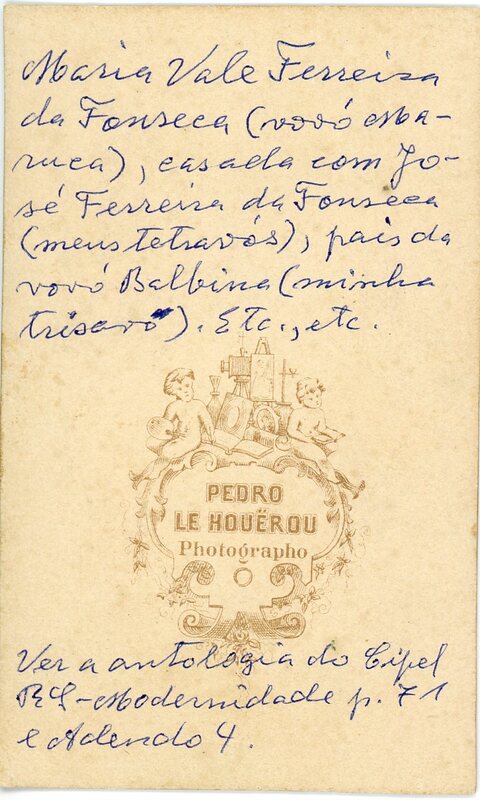 Maria Vale Ferreira
da Fonseca (vovó Ma-
ruca), casada com Jo-
sé Ferreira da Fonseca
(meus tetravós), pais da
vovó Balbina (minha
trisavó). Etc., etc.
PEDRO
LE HOUËROU
Photographo
Ver a antologia do Cipel
RS-Modernidade p. 71
e Adendo 4.